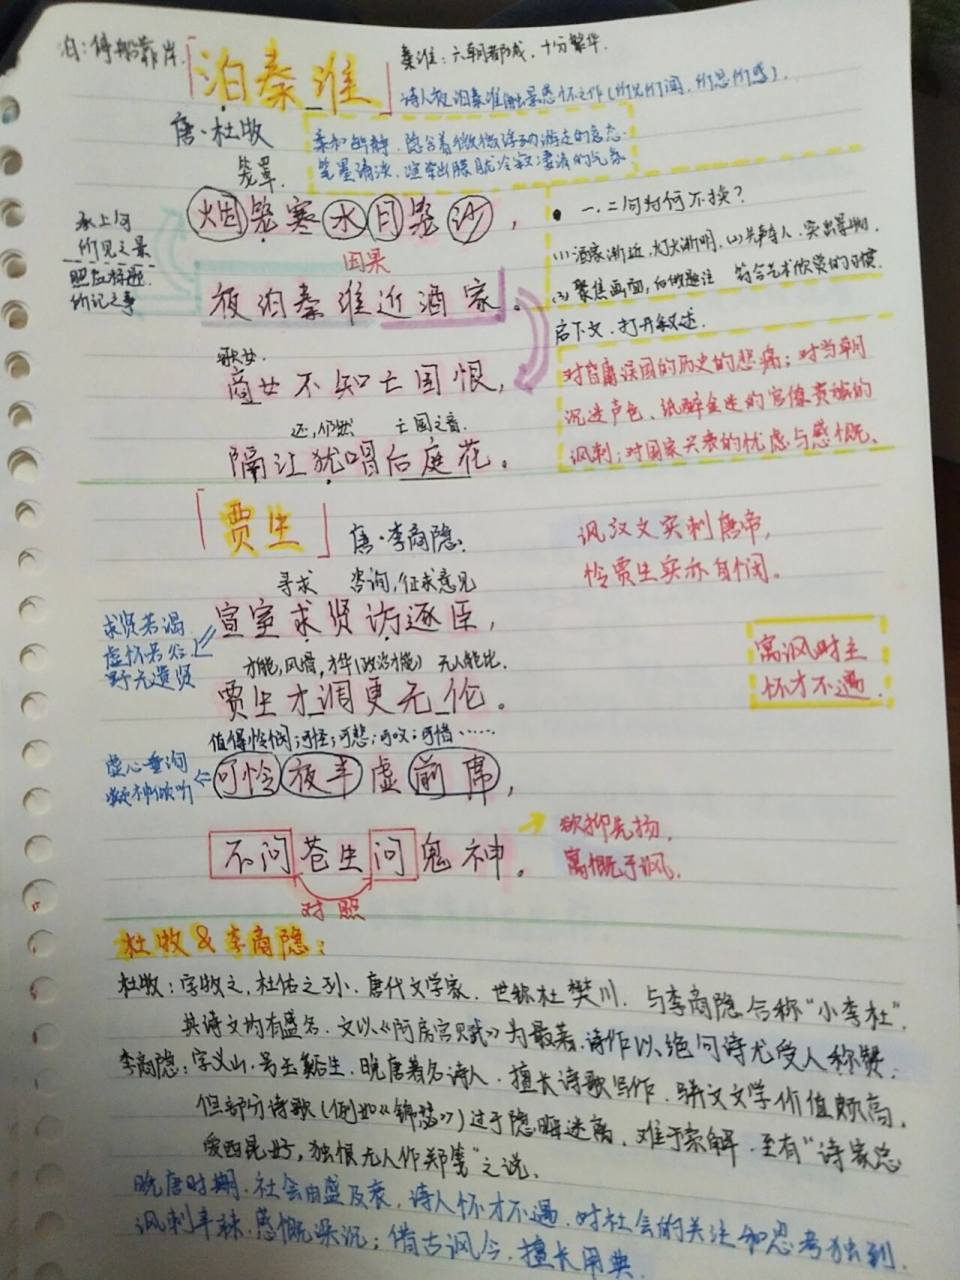 泊：停船靠岸.
「泊秦淮」
秦淮：六朝都城，十分繁华.
诗人夜泊秦淮触景感怀之作(所见所闻，所思所感).
唐·杜牧
柔和幽静，隐含着微微浮动游走的意态.
笔墨清淡，渲染出朦胧冷寂凄清的气氛
笼罩.
烟笼寒水月笼沙，
承上句
所见之景
照应标题
所记之事
• 一、二句为何不换？
(1)酒家渐近，灯火渐明. (2)先声夺人，突出景物.
(3)聚焦画面，后做题注 符合艺术欣赏的习惯.
因果
夜泊秦淮近酒家.
启下文，打开叙述.
歌女.
商女不知亡国恨，
还，仍然 亡国之音.
隔江犹唱后庭花。
对昏庸误国的历史的悲痛；对当朝
沉迷声色、纸醉金迷的官僚贵族的
讽刺；对国家兴衰的忧虑与感慨。
「贾生」
唐·李商隐：
讽汉文实刺唐帝，
怜贾生实亦自悯。
寻求 咨询，征求意见
宣室求贤访逐臣，
求贤若渴
虚怀若谷
野无遗贤
才能，风情，才华(政治才能) 无人能比.
贾生才调更无伦。
寓讽时主
怀才不遇
值得怜悯；可怪；可悲；可叹；可惜……
可怜夜半虚前席，
虚心垂询
凝神倾听
不问苍生问鬼神。
对照
欲抑先扬.
寓慨于讽.
杜牧 & 李商隐：
杜牧：字牧之，杜佑之孙. 唐代文学家. 世称杜樊川. 与李商隐合称"小李杜".
其诗文均有盛名. 文以《阿房宫赋》为最著，诗作以绝句诗尤受人称赞.
李商隐：字义山. 号玉谿生. 晚唐著名诗人. 擅长诗歌写作. 骈文文学价值颇高.
但部分诗歌(例如《锦瑟》)过于隐晦迷离，难于索解. 至有"诗家总
爱西昆好，独恨无人作郑笺"之说.
晚唐时期，社会由盛及衰，诗人怀才不遇，对社会的关注和思考独到.
讽刺辛辣，感慨深沉；借古讽今，擅长用典.